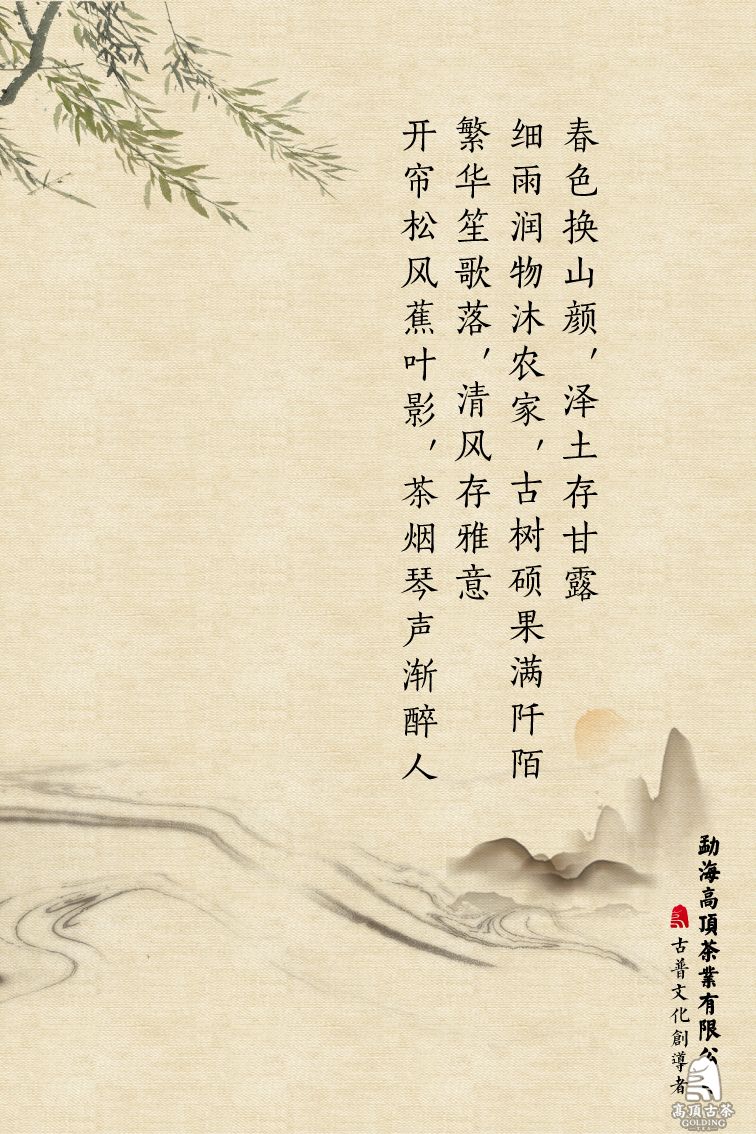 春色换山颜，泽土存甘露
细雨润物沐农家，古树硕果满阡陌
繁华笙歌落，清风存雅意
开帘松风蕉叶影，茶烟琴声渐醉人
勐海高頂茶業有限公
古普文化創導者
高頂古茶
GOLDING